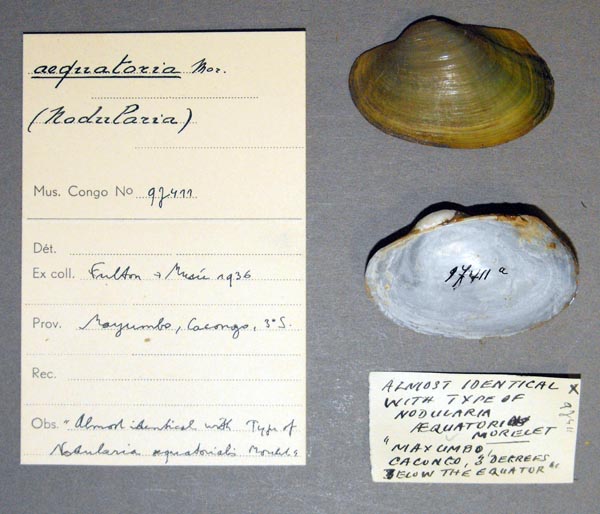 aequatoria Mor.
(Nodularia)
Mus. Congo No 97411
Dét.
Ex coll. Fulton → Musée 1936
Prov. Mayumbo, Cacongo, 3°S.
Rec.
Obs. "Almost identical with Type of
Nodularia aequatorialis Morelet"
97411 a
ALMOST IDENTICAL X
WITH TYPE OF
NODULARIA
ÆQUATORI
MORELET
97411
"MAYUMBO,
CACONGO, 3 DEGREES
BELOW THE EQUATOR"